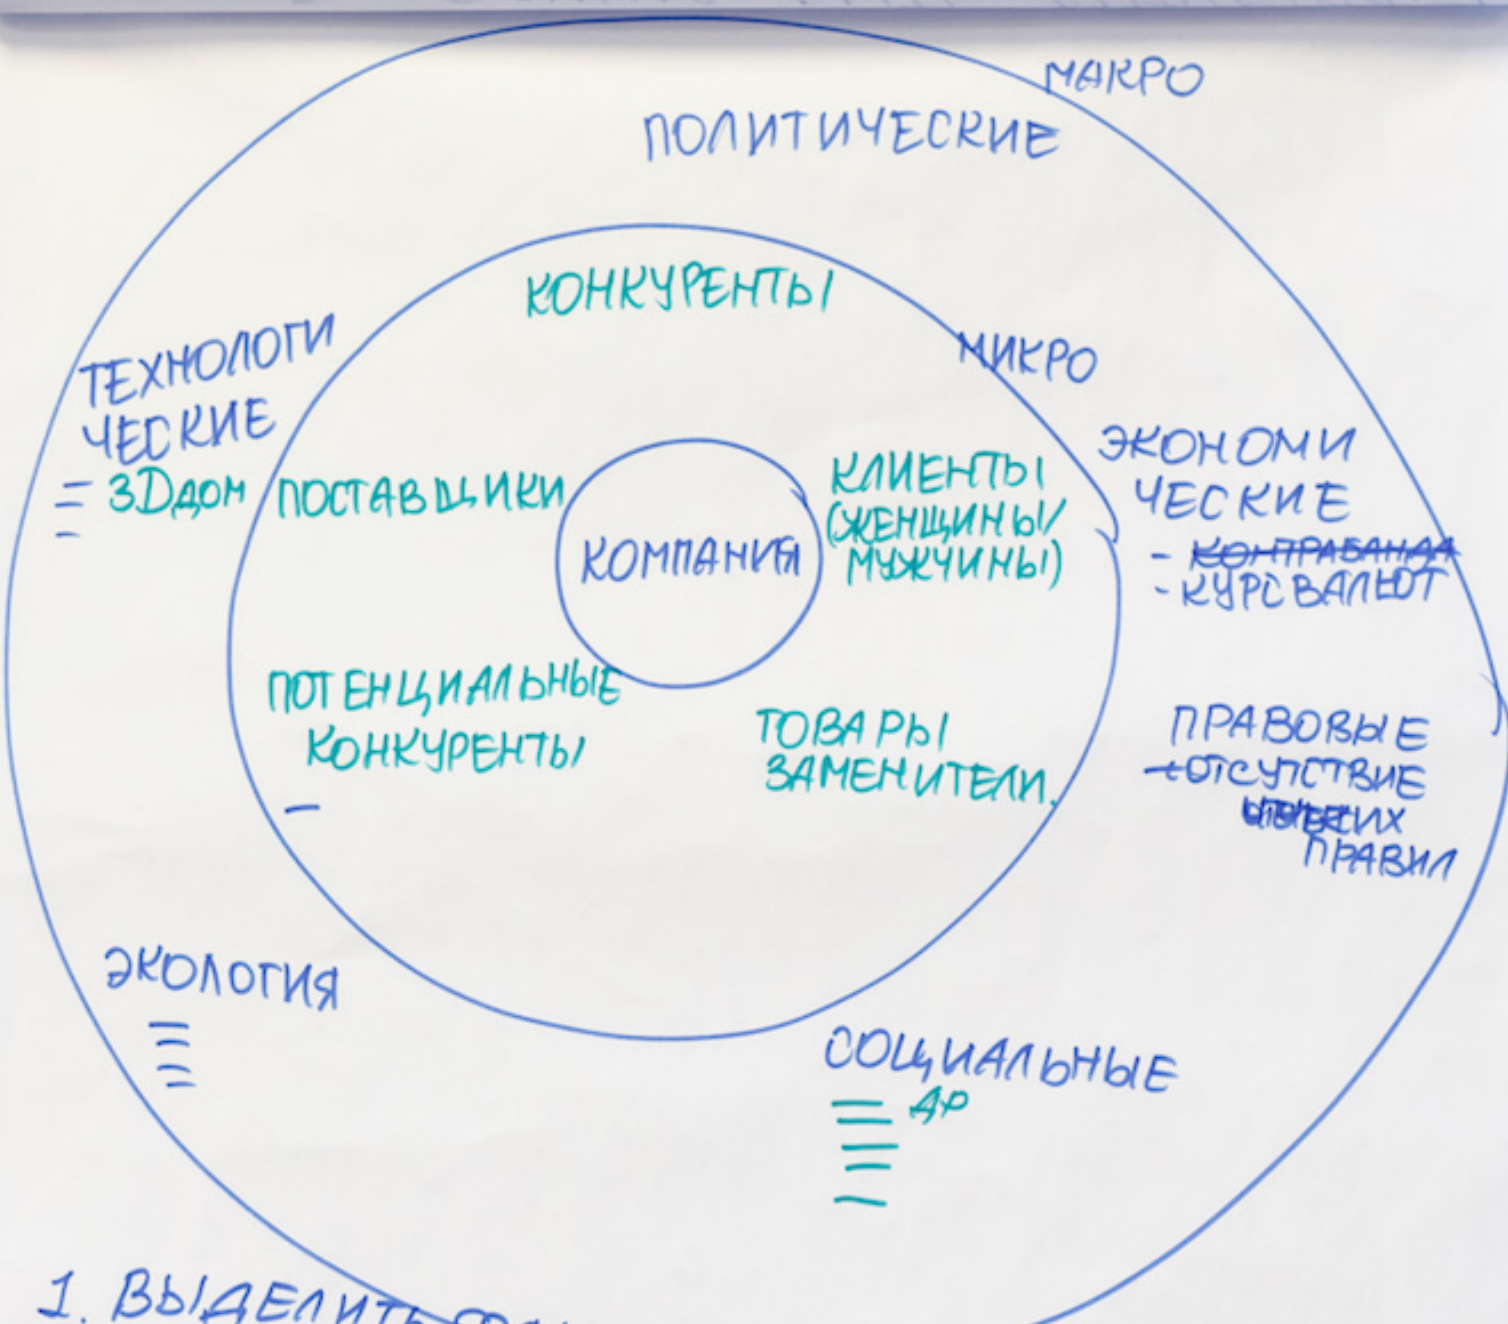 МАКРО
ПОЛИТИЧЕСКИЕ
КОНКУРЕНТЫ
МИКРО
ТЕХНОЛОГИ
ЧЕСКИЕ
3D ДОМ
ПОСТАВЩИКИ
КОМПАНИЯ
КЛИЕНТЫ
(ЖЕНЩИНЫ/
МУЖЧИНЫ)
ЭКОНОМИ
ЧЕСКИЕ
- КОНТРАБАНДА
- КУРС ВАЛЮТ
ПОТЕНЦИАЛЬНЫЕ
КОНКУРЕНТЫ
ТОВАРЫ
ЗАМЕНИТЕЛИ.
ПРАВОВЫЕ
- ОТСУТСТВИЕ
ПРАВИЛ
ЭКОЛОГИЯ
СОЦИАЛЬНЫЕ
ДР
1. ВЫДЕЛИТЬ